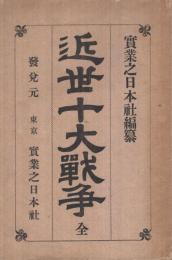 實業之日本社編纂
近世十大戰爭 全
發兌元 東京 實業之日本社